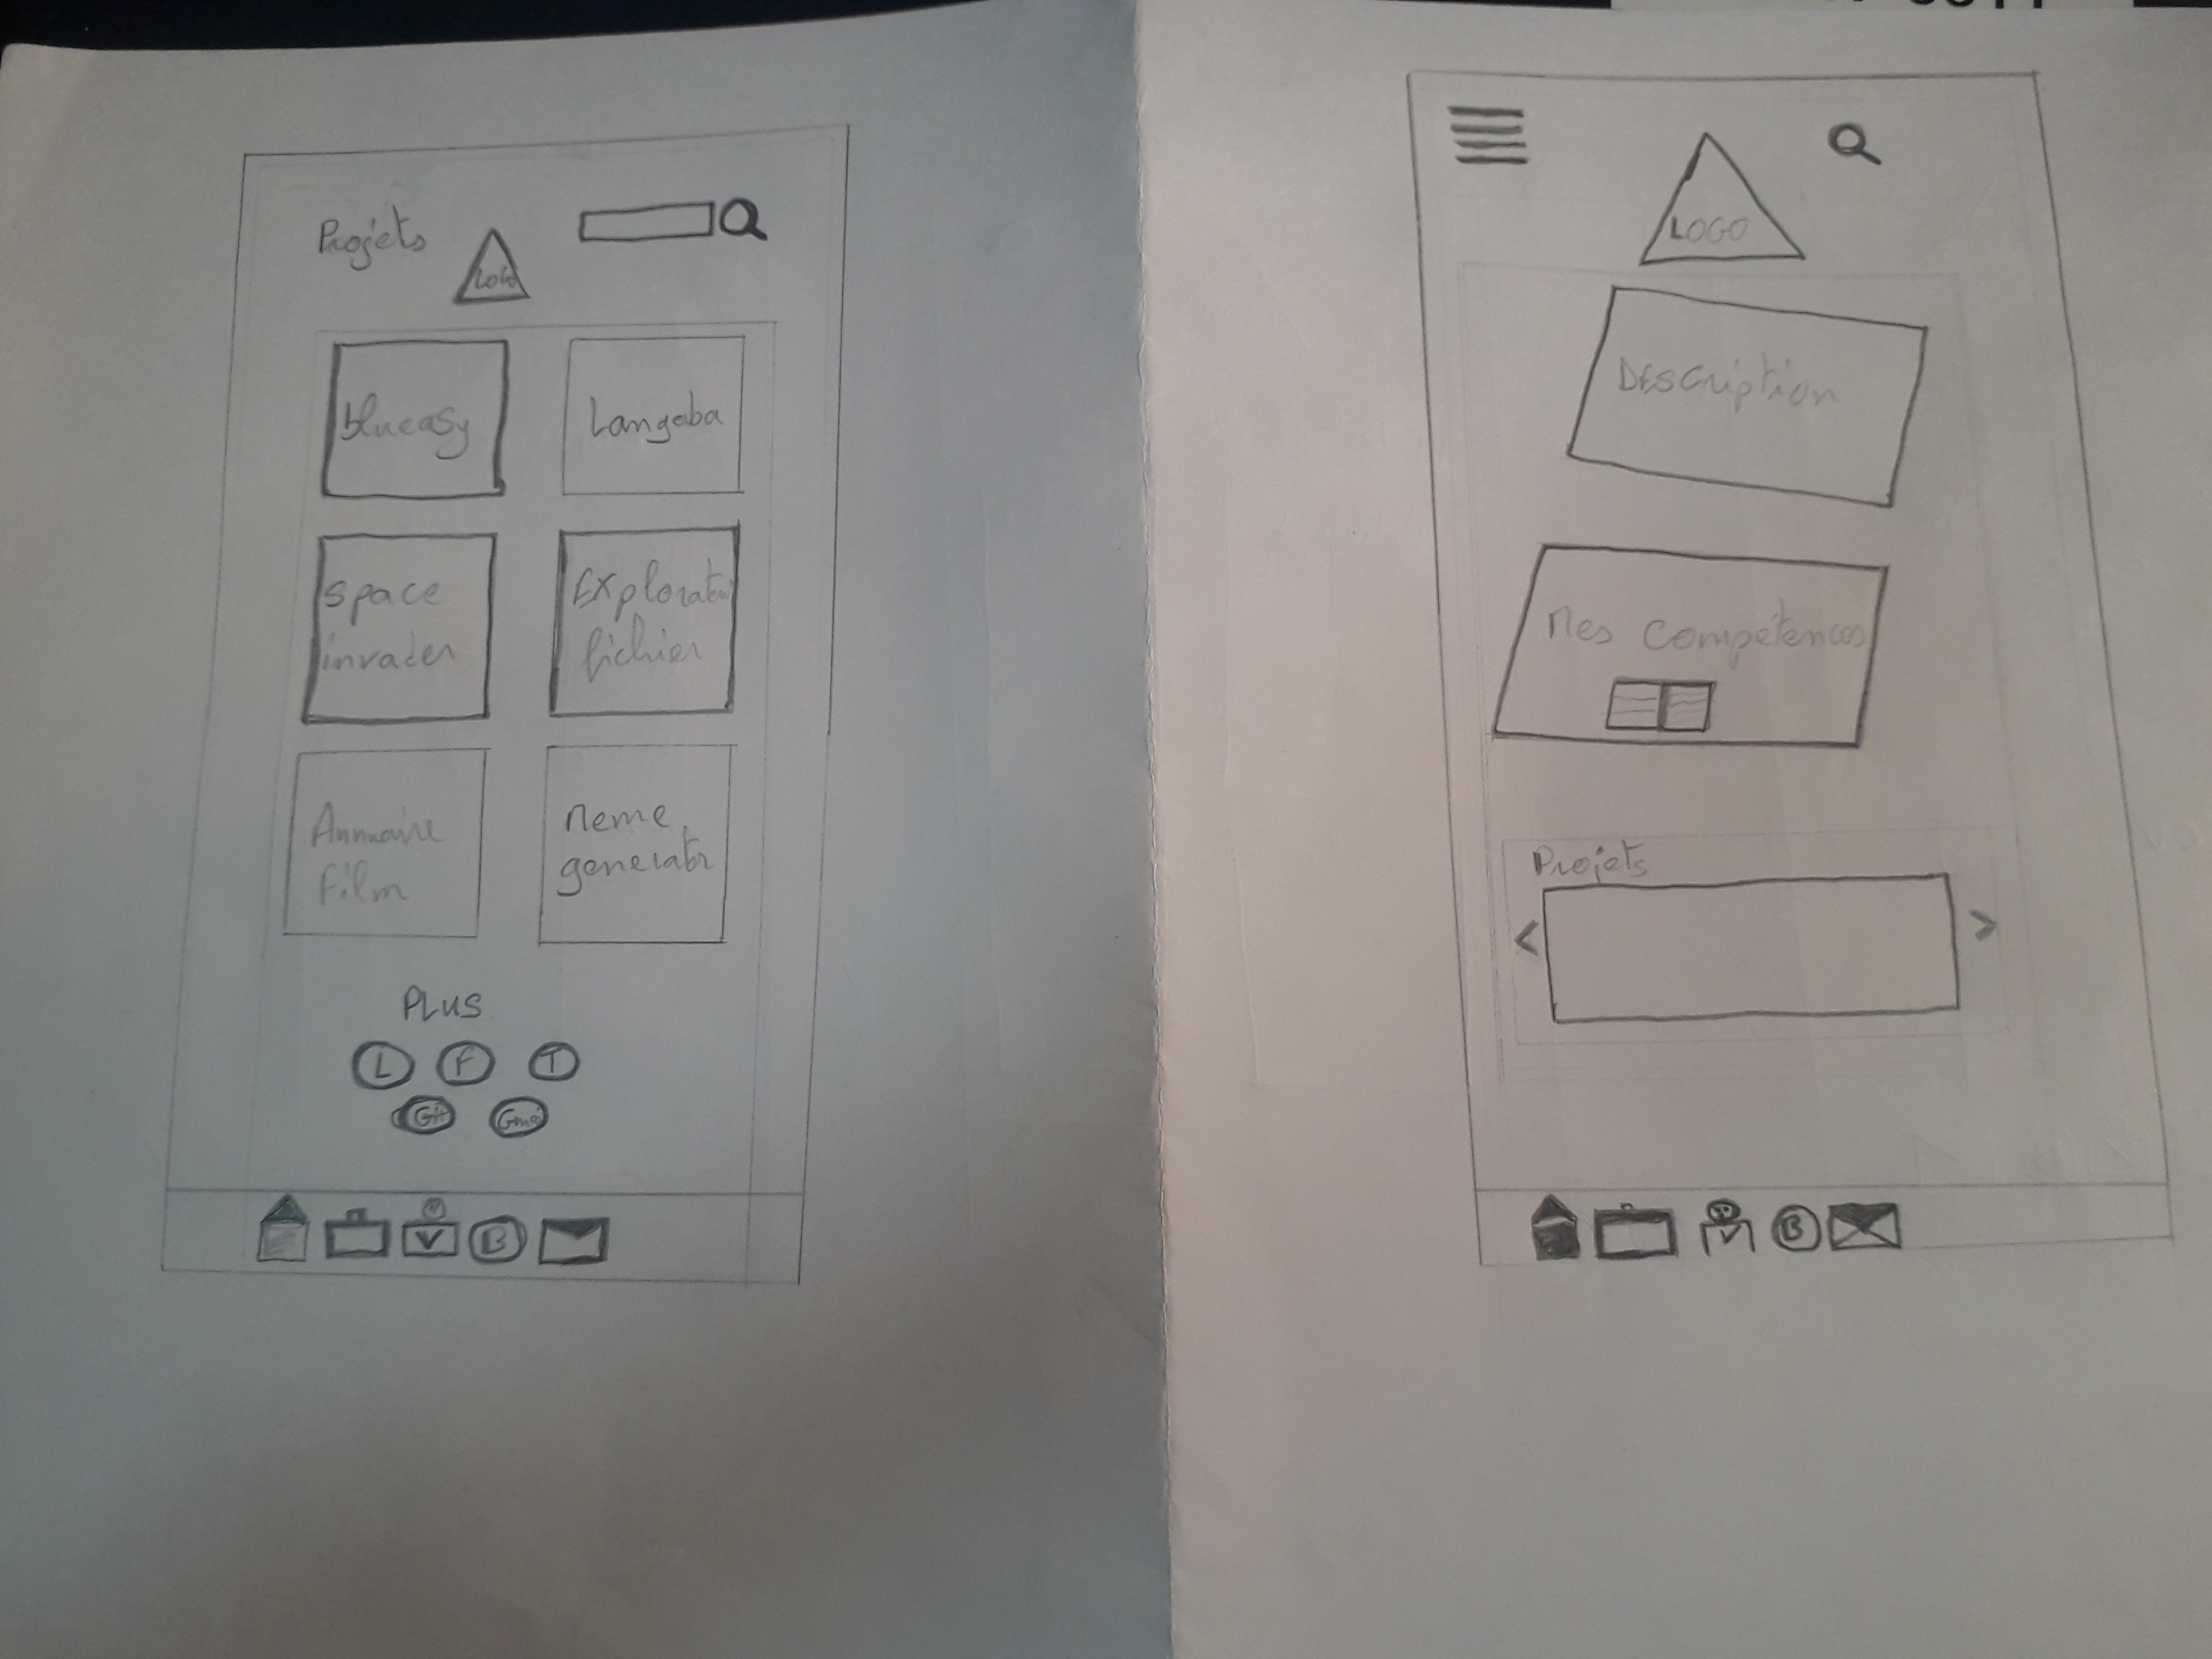 Projets
LOGO
blueasy
Langaba
space
invader
Explorateur
fichier
Annuaire
Film
Meme
generator
PLUS
L F T
Git Gmail
B
LOGO
Description
Mes compétences
Projets
< >
B